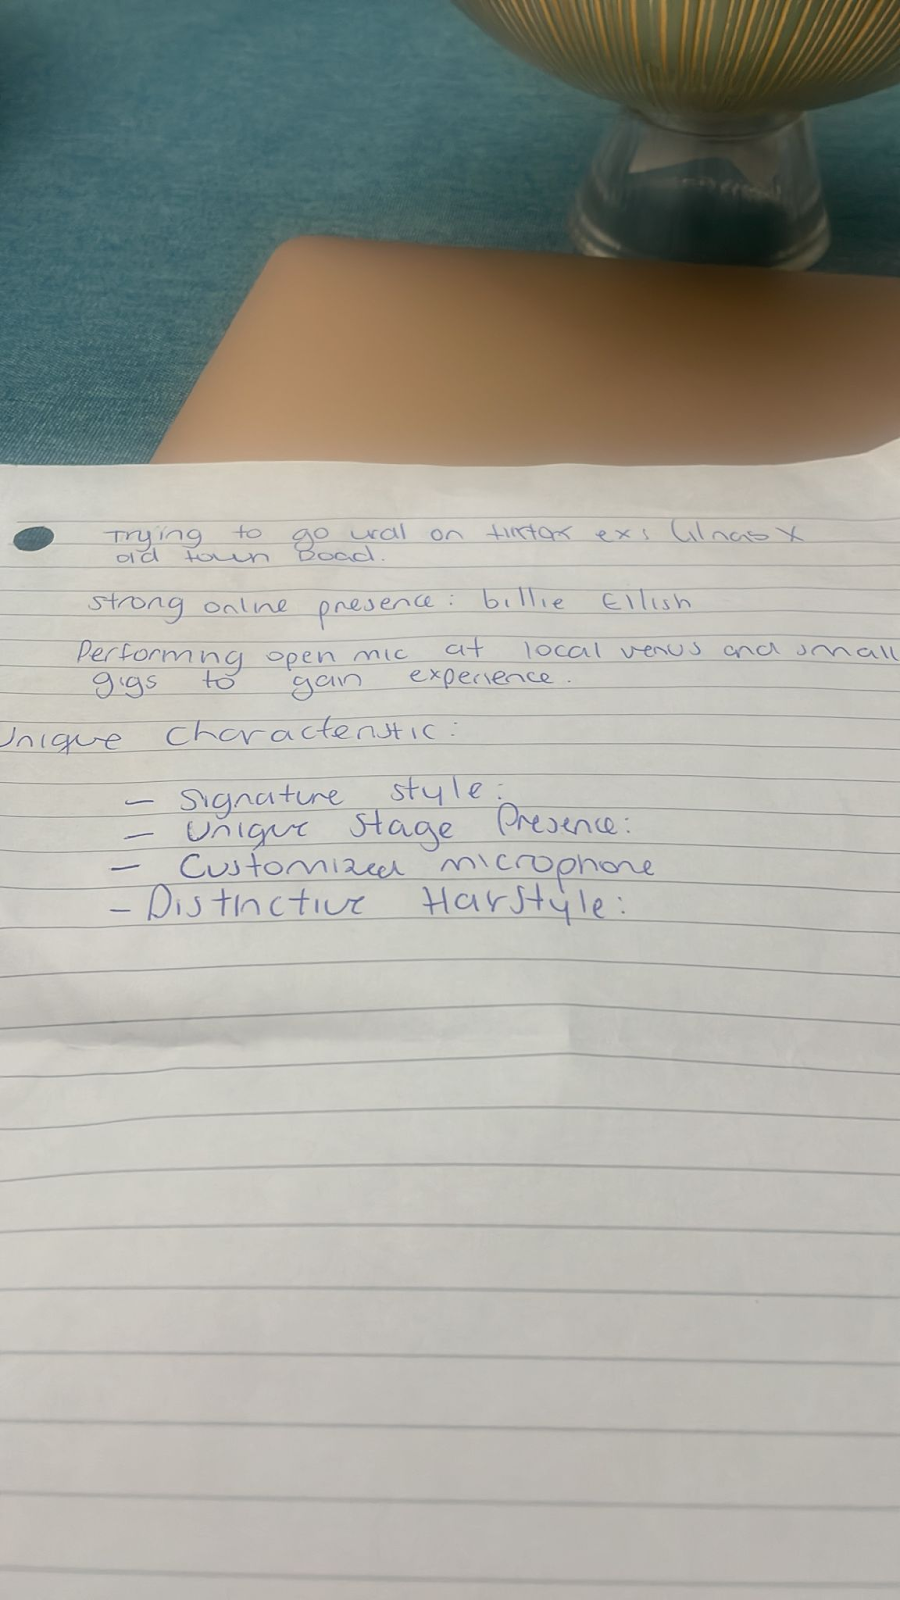 Trying to go viral on tiktok ex: lil nas X
old town Road.
strong online presence: billie Eilish
Performing open mic at local venus and small
gigs to gain experience.
Unique characteristic:
- Signature style:
- Unique Stage Presence:
- Customized microphone
- Distinctive Harstyle: